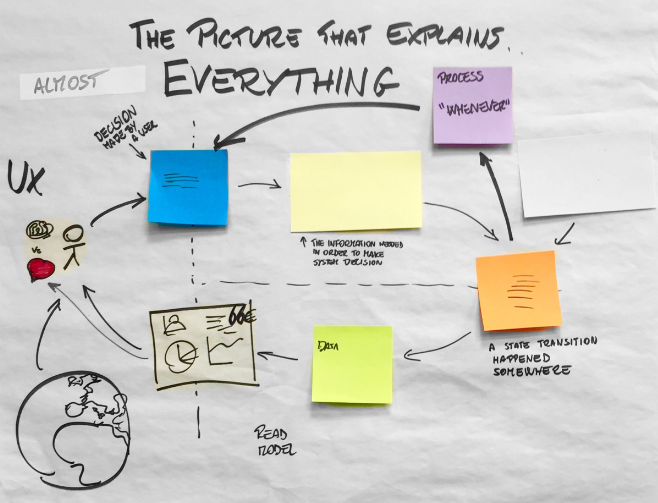 THE PICTURE THAT EXPLAINS...
ALMOST
EVERYTHING
PROCESS
"WHENEVER"
DECISION
MADE BY
A USER
UX
VS
↑ THE INFORMATION NEEDED
IN ORDER TO MAKE
SYSTEM DECISION
66€
DATA
A STATE TRANSITION
HAPPENED
SOMEWHERE
READ
MODEL